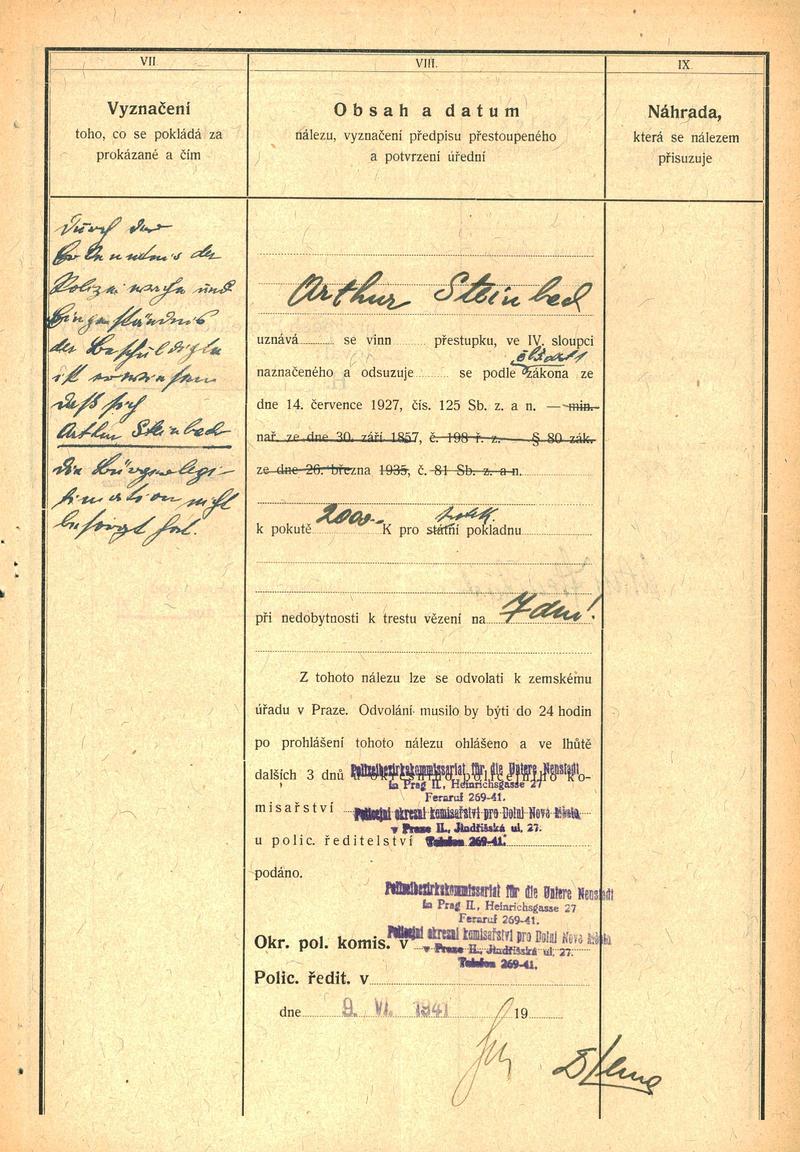 VII.
Vyznačení
toho, co se pokládá za
prokázané a čím
Durch das
Erkenntnis der
Polizeiwache und
Eingeständnis
des Beschuldigten
ist erwiesen
daß sich
Arthur Steinbach
die Bürgerlegi-
timation nicht
besorgt hat.
VIII.
Obsah a datum
nálezu, vyznačení předpisu přestoupeného
a potvrzení úřední
Arthur Steinbach
uznává se vinn přestupku, ve IV. sloupci
naznačeného a odsuzuje se podle zákona ze
dne 14. července 1927, čís. 125 Sb. z. a n. — min.
nař. ze dne 30. září 1857, č. 198 ř. z. — § 80 zák.
ze dne 26. března 1935, č. 81 Sb. z. a n.
k pokutě 2000.- K pro státní pokladnu
při nedobytnosti k trestu vězení na 7 dní!
Z tohoto nálezu lze se odvolati k zemskému
úřadu v Praze. Odvolání musilo by býti do 24 hodin
po prohlášení tohoto nálezu ohlášeno a ve lhůtě
dalších 3 dnů u okresního policejního ko-
Polizeibezirkskommissariat für die Untere Neustadt
in Prag II., Heinrichsgasse 27
Fernruf 269-41.
misařství
Policejní okresní komisařství pro Dolní Nové Město
v Praze II., Jindřišská ul. 27.
u polic. ředitelství
Telefon 269-41.
podáno.
Polizeibezirkskommissariat für die Untere Neustadt
in Prag II., Heinrichsgasse 27
Fernruf 269-41.
Okr. pol. komis. v
Policejní okresní komisařství pro Dolní Nové Město
v Praze II., Jindřišská ul. 27.
Telefon 269-41.
Polic. ředit. v
dne 9. VI. 1941 19
IX.
Náhrada,
která se nálezem
přisuzuje